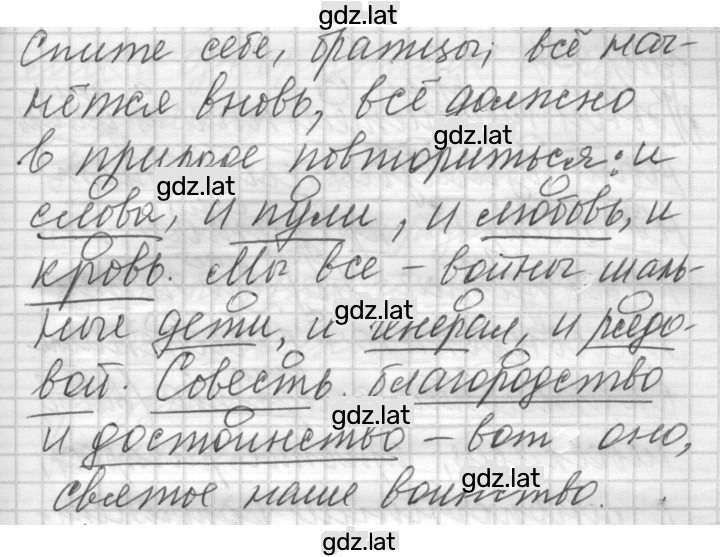 gdz.lat
Спите себе, братцы, всё нач-
нётся вновь, всё должно
gdz.lat
в природе повториться: и
gdz.lat
слова, и пули, и любовь, и
кровь. Мы все – войны шаль-
gdz.lat
ные дети, и генерал, и рядо-
вой. Совесть, благородство
gdz.lat
и достоинство – вот оно,
gdz.lat
святое наше воинство.
gdz.lat